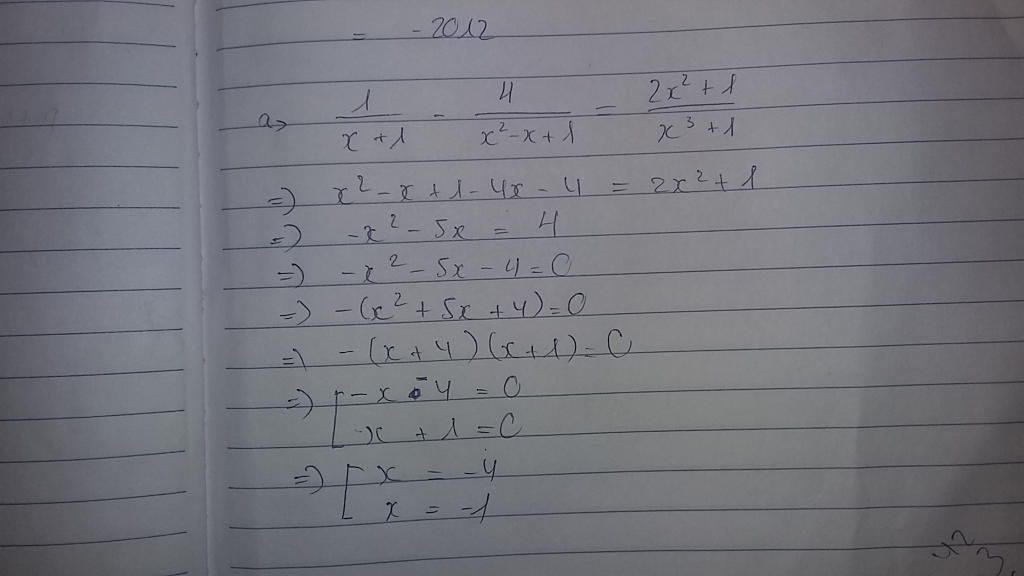 = -2012
a> 1/(x+1) - 4/(x²-x+1) = (2x²+1)/(x³+1)
=) x² - x + 1 - 4x - 4 = 2x² + 1
=) -x² - 5x = 4
=) -x² - 5x - 4 = 0
=) -(x² + 5x + 4) = 0
=) -(x+4)(x+1) = 0
=) [ -x - 4 = 0
x + 1 = 0
=) [ x = -4
x = -1